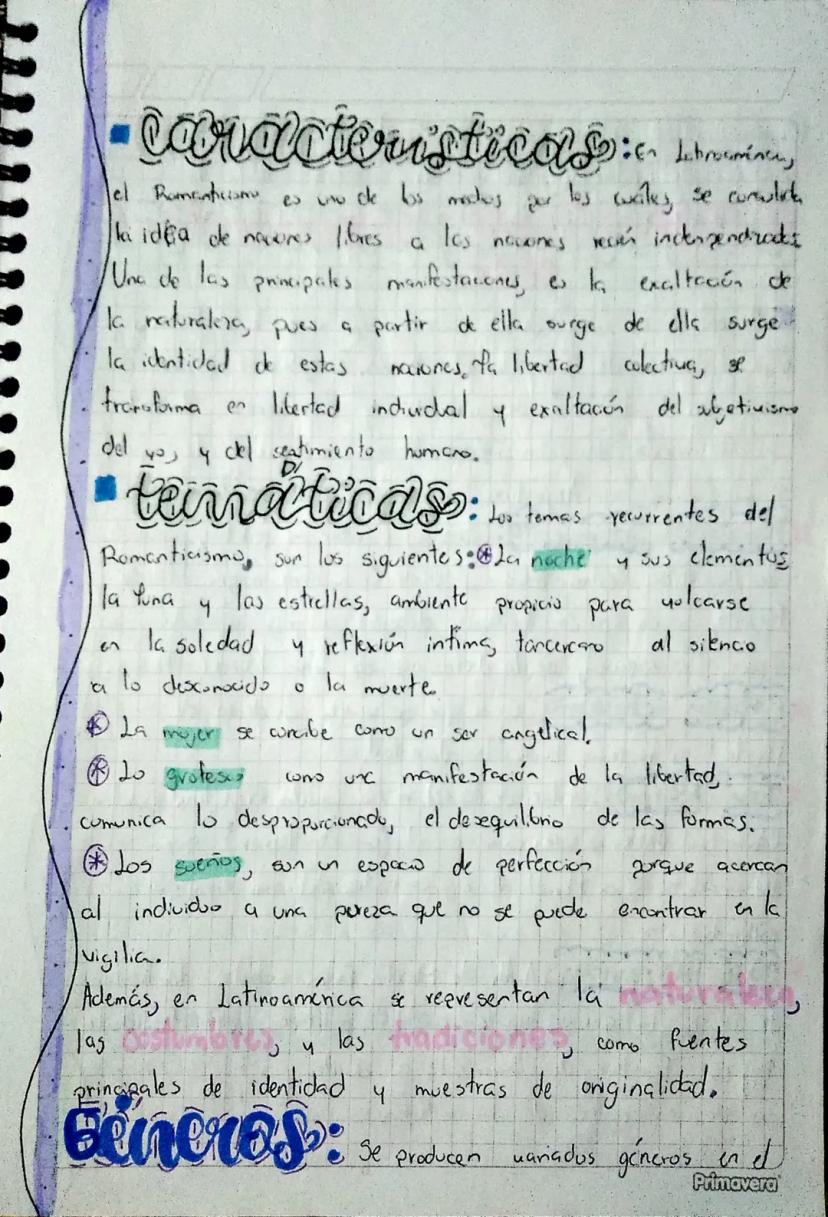 características: en Latinoamérica,
el Romanticismo es uno de los medios por los cuáles, se consolida
la idea de naciones libres a las naciones recién independizads
Una de las principales manifestaciones, es la exaltación de
la naturaleza, pues a partir de ella surge de ella surge
la identidad de estas naciones, la libertad colectiva, se
transforma en libertad individal y exaltación del subjetivismo
del yo, y del sentimiento humano.
temáticas: Los temas recurrentes del
Romanticismo, son los siguientes: * La noche y sus elementos
la luna y las estrellas, ambiente propicio para volcarse
en la soledad y reflexión intima, al silencio
a lo desconocido o la muerte.
* La mujer se concibe como un ser angelical.
* Lo grotesco como una manifestación de la libertad,
comunica lo desproporcionado, el desequilibrio de las formas.
* Los sueños, son un espacio de perfección porque acercan
al individuo a una pureza que no se puede encontrar en la
vigilia.
Además, en Latinoamérica se representan la naturaleza,
las costumbres, y las tradiciones, como fuentes
principales de identidad y muestras de originalidad.
Géneros: Se producen variados géneros en el
Primavera